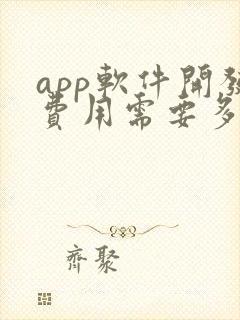 app軟件開發
費用需要多
齊聚